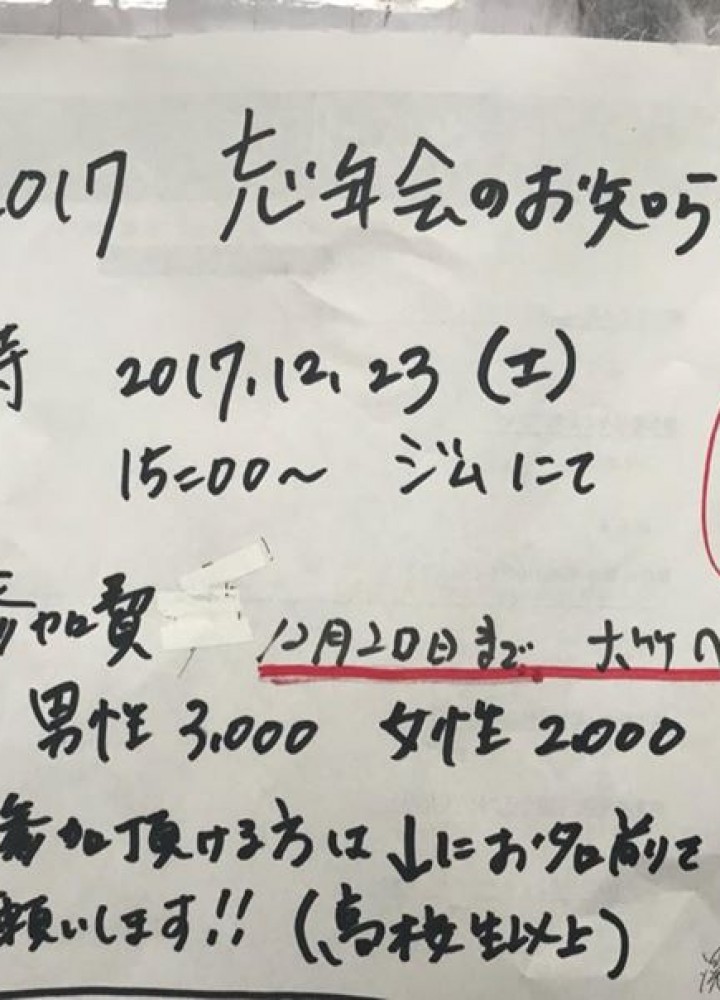 2017 忘年会のお知ら
時 2017.12.23(土)
15:00〜 ジムにて
参加費
12月20日まで 大竹へ
男性 3,000 女性 2,000
参加頂ける方は↓にお名前を
願いします!!(高校生以上)